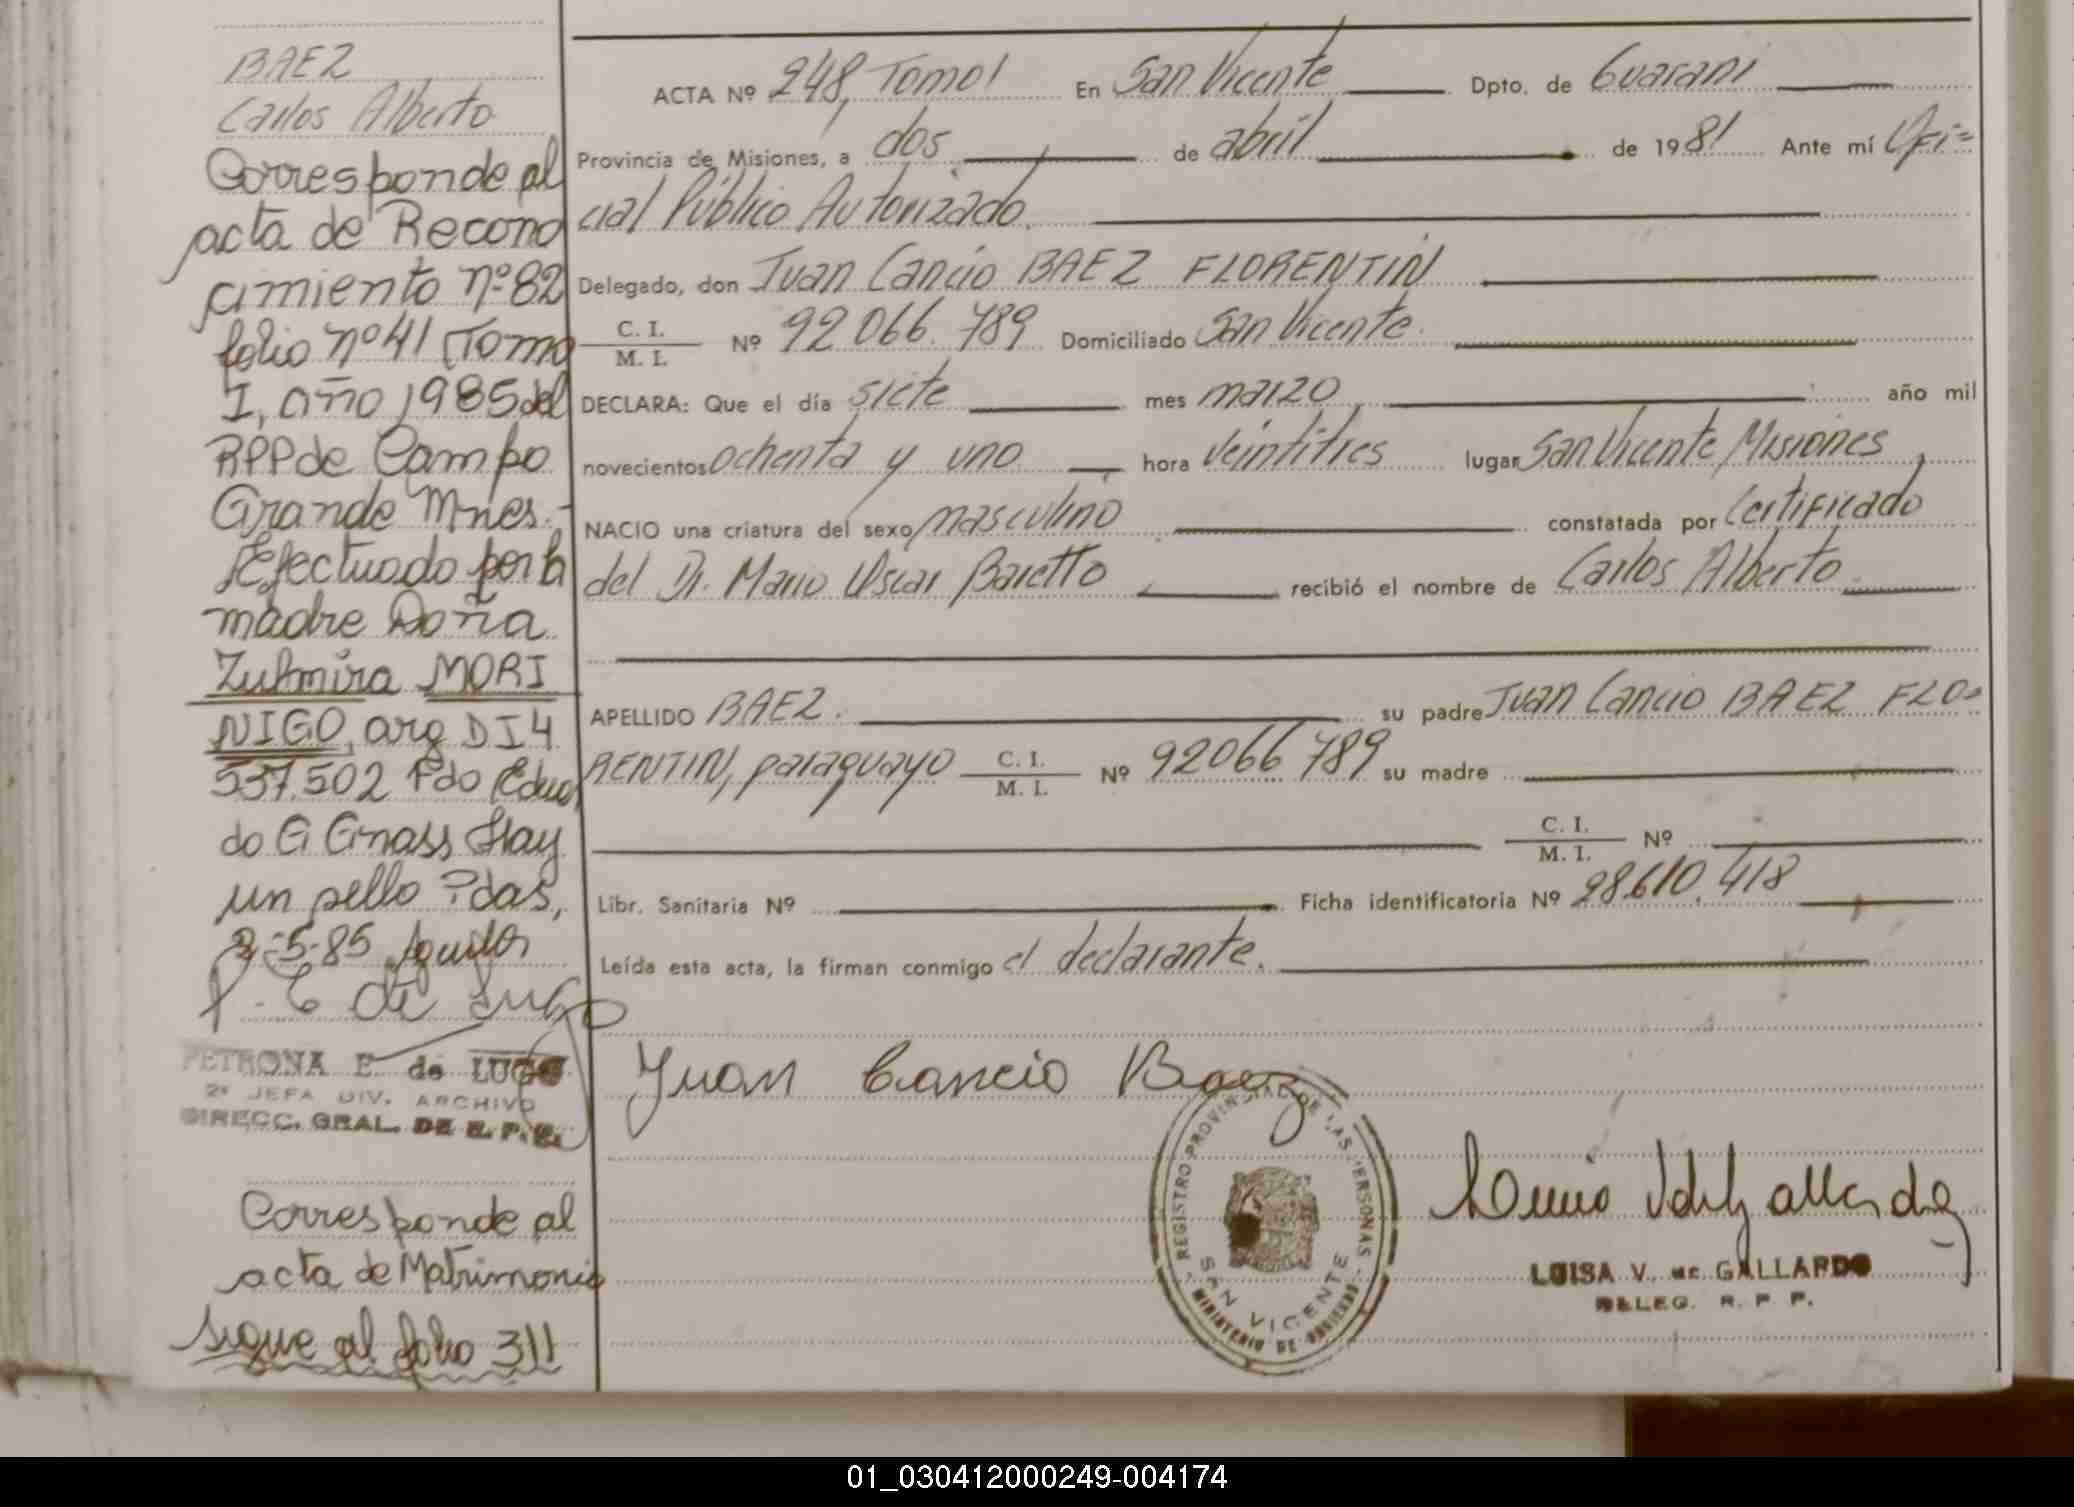 BAEZ
Carlos Alberto
Corresponde al
acta de Recono
cimiento nº 82
folio nº 41 Tomo
I, año 1985 del
RPP de Campo
Grande Mnes.-
Efectuado por la
madre Doña
Zulmira MORI
NIGO, arg DI 4
537.502 Fdo Eduar
do G Gnass Hay
un sello Pdas,
2-5-85
P. E de Lugo
PETRONA E. de LUGO
2ª JEFA DIV. ARCHIVO
DIRECC. GRAL. DE R. P. P.
Corresponde al
acta de Matrimonio
sigue al folio 311
ACTA Nº 248, Tomo I En San Vicente Dpto. de Guarani
Provincia de Misiones, a dos de abril de 1981 Ante mí Ofi=
cial Público Autorizado.
Delegado, don Juan Cancio BAEZ FLORENTIN
C. I.
M. I. Nº 92.066.789 Domiciliado San Vicente.
DECLARA: Que el día siete mes marzo año mil
novecientos ochenta y uno hora veintitres lugar San Vicente, Misiones
NACIO una criatura del sexo masculino constatada por Certificado
del Dr. Mario Oscar Baretto recibió el nombre de Carlos Alberto
APELLIDO BAEZ. su padre Juan Cancio BAEZ FLO=
RENTIN, paraguayo C. I.
M. I. Nº 92066789 su madre
C. I.
M. I. Nº
Libr. Sanitaria Nº Ficha identificatoria Nº 28.610.418
Leída esta acta, la firman conmigo el declarante.
Juan Cancio Baez
REGISTRO PROVINCIAL DE LAS PERSONAS
SAN VICENTE
MINISTERIO DE GOBIERNO
LUISA V. de GALLARDO
DELEG. R. P. P.
01_030412000249-004174